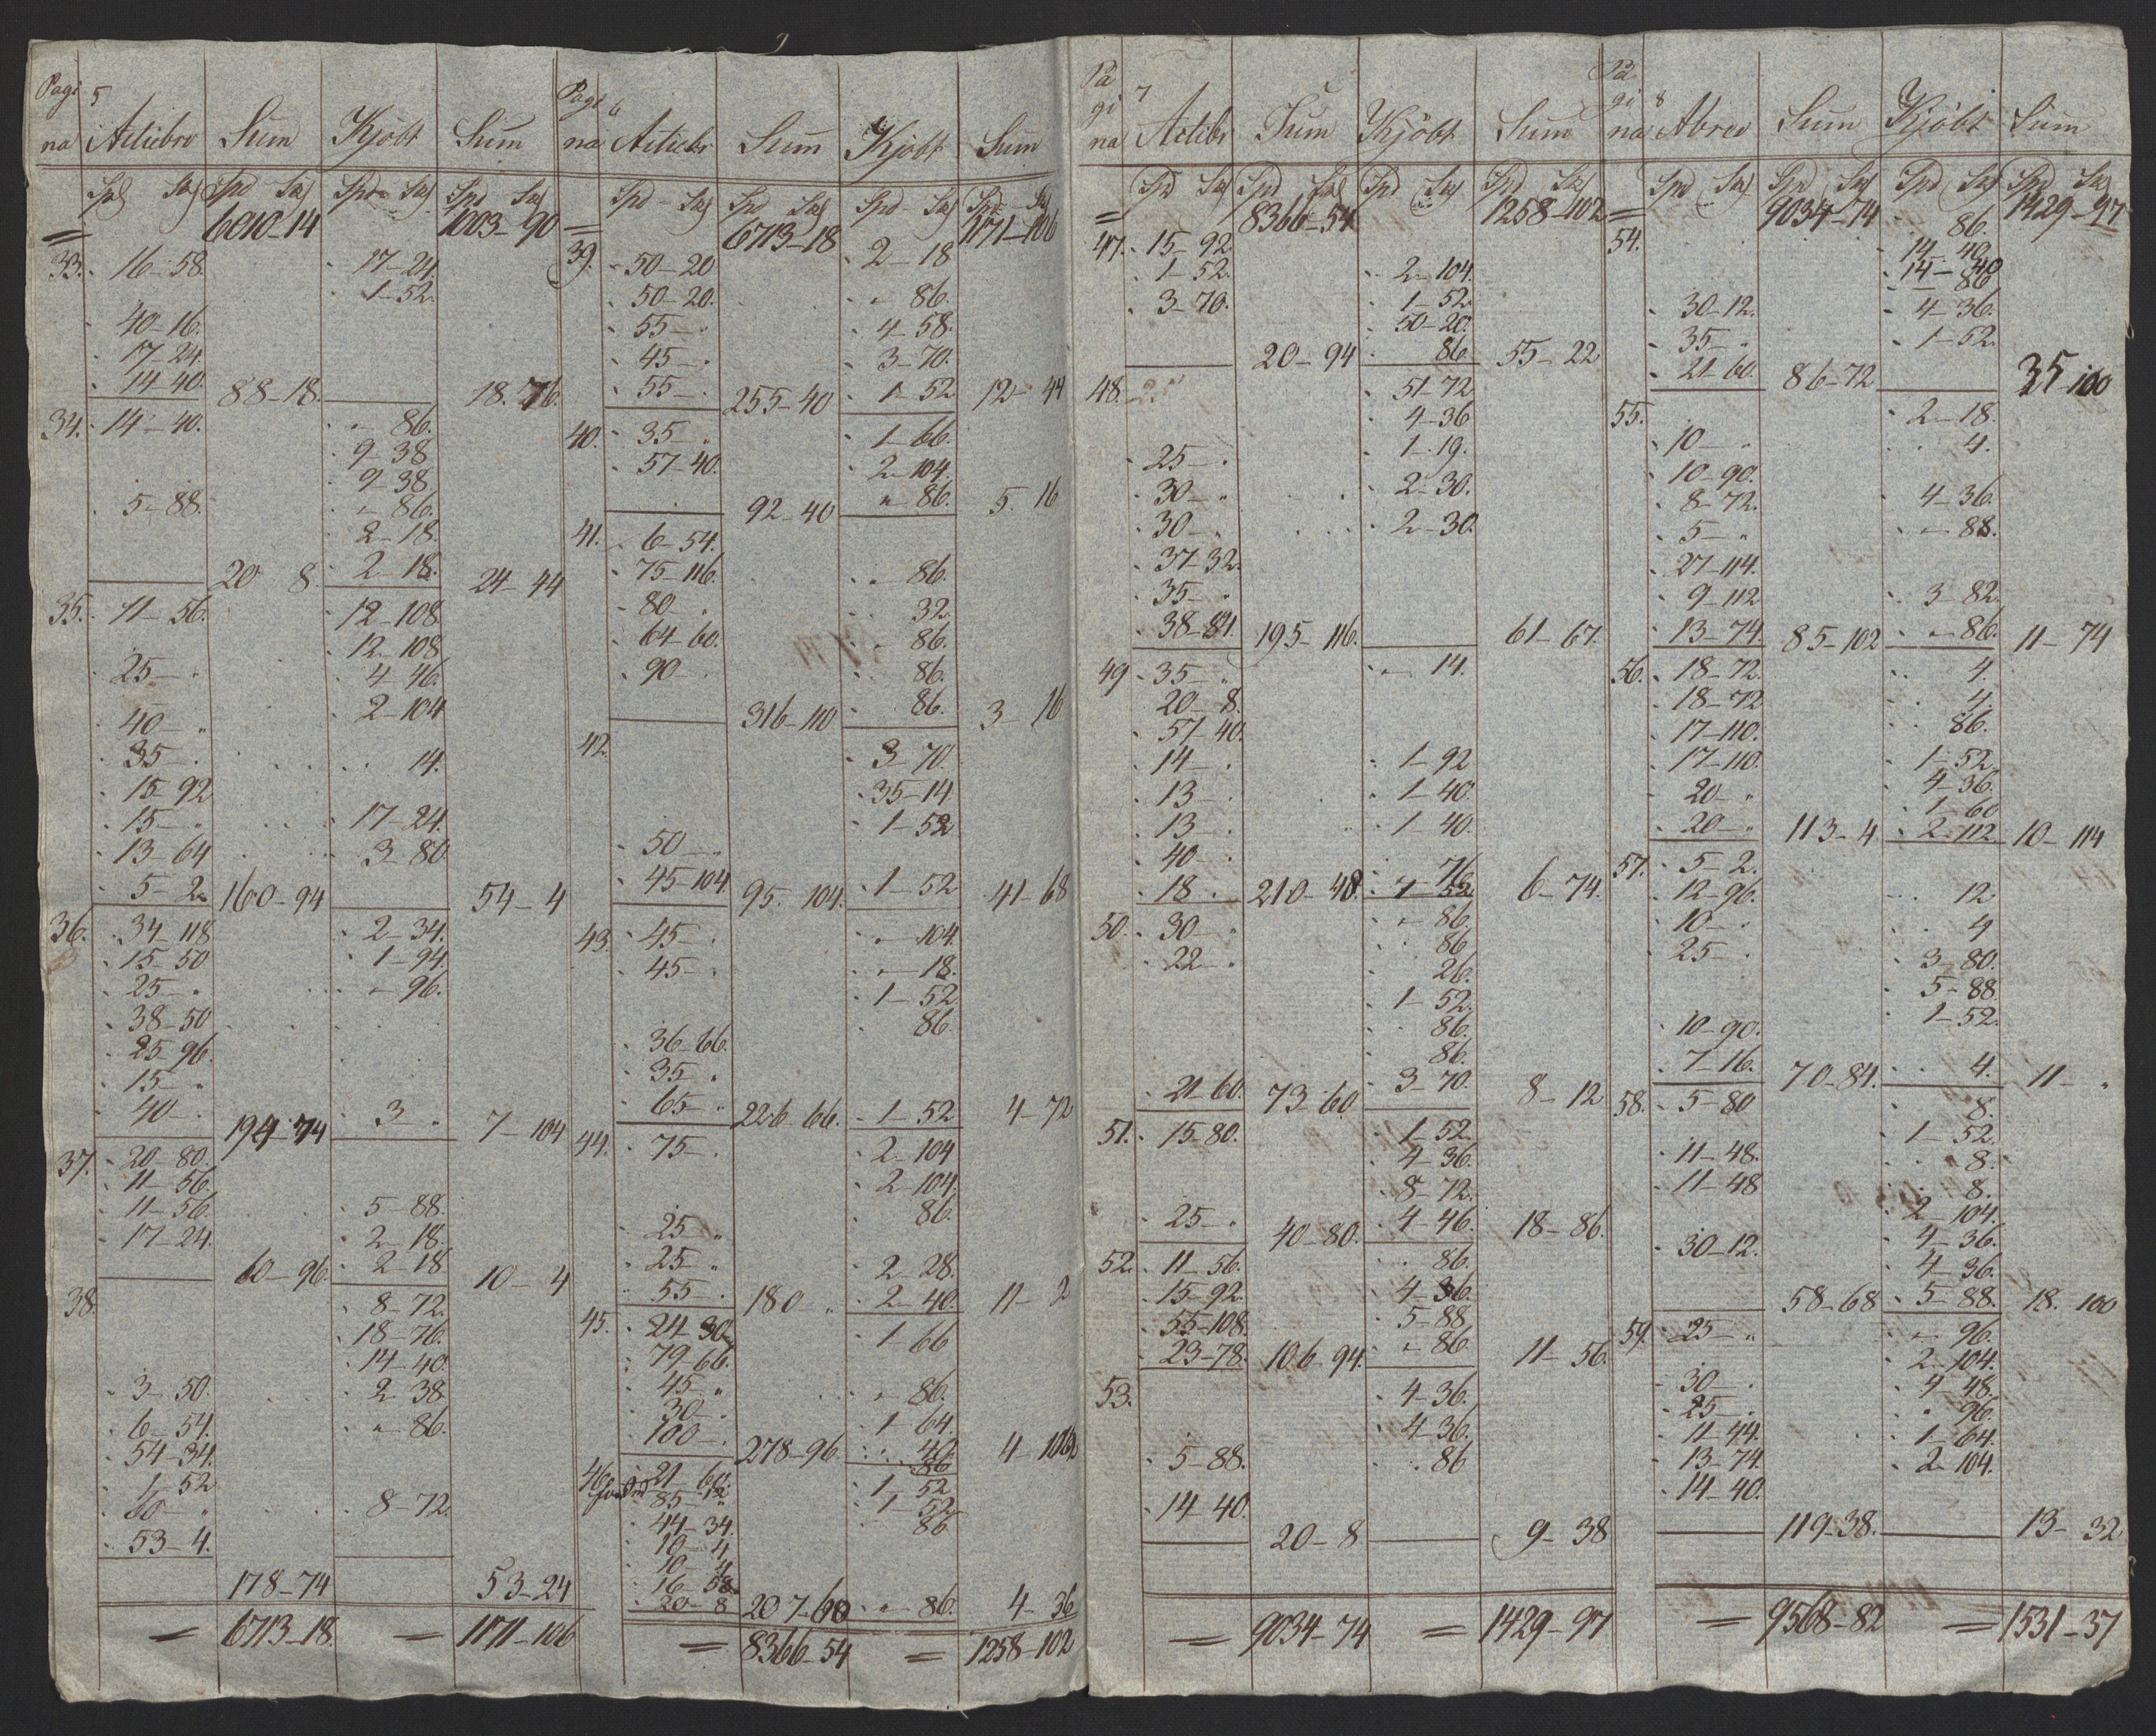 Pagi 5
na Actiebr Sum Kjöbt Sum
Spd Sk Spd Sk Spd Sk Spd Sk
= 6010-14 1003-90
33. 16-58. 17-24.
1-52.
40-16.
17-24.
14-40. 88-18. 18.76.
34. 14-40. "-86.
9-38
9-38
5-88. "-86.
2-18.
20 8. 2-18. 24-44
35. 11-56. 12-108
12-108
25-" 4-46.
2-104
40-"
35-" 14.
15-92
15-" 17-24.
13-64 3-80
5-2 160-94 54-4
36. 34-118 2-34.
15-50 1-94.
25-" "-96.
38-50
25-96.
15-"
40-" 194-74 3 " 7-104
37. 20-80.
11-56.
11-56. 5-88.
17-24. 2-18.
60-96 2-18 10-4
38. 8-72.
18-76.
14-40.
3-50. 2-38
6-54. "-86.
54-34.
1-52
60-" 8-72.
53-4.
178-74 53-24
= 6713-18. = 1171-106
Pagi 6
na Actiebr Sum Kjöbt Sum
Spd Sk Spd Sk Spd Sk Spd Sk
= 6713-18 1171-106
39. 50-20 2-18
50-20. "-86.
55-" 4-58.
45-" 3-70.
55-" 255-40 1-52 12-44
40. 35-" 1-66.
57-40. 2-104.
92-40 "-86. 5-16
41. 6-54.
75-116. "-86.
80-" 32.
64-60. 86.
90-" 86.
316-110 86. 3-16
42. 3-70.
35-14
1-52
50-"
45-104 95-104. 1-52 41-68
43. 45-" "-104.
45-" "-18.
1-52
86.
36-66.
35-"
65-" 226-66. 1-52 4-72
44. 75-" 2-104
2-104.
86.
25-"
25-" 2-28.
55-" 180-" 2-40. 11-2
45. 24-30 1-66
79-66.
45-" "-86.
30-" 1-64.
100-" 278-96 40 4-106
86
46. 21-60. 1-52
85-12 1-52
44-34. 86
10-4
10-4
16-58
20-8 207-60 "-86. 4-36
= 8366-54 = 1258-102
Pa
gi 7
na Actiebr Sum Kjöbt Sum
Spd Sk Spd Sk Spd Sk Spd Sk
= 8366-54 1258-102
47. 15-92
1-52. 2-104.
3-70. 1-52.
50-20.
20-94 86 55-22
48. 51-72
4-36
25-" 1-19.
30-" 2-30.
30-" 2-30.
37-32.
35-"
38-84. 195-116. 61-67.
49 35-" "-14.
20-8.
57-40.
14-" 1-92
13-" 1-40.
13-" 1-40.
40-" 76
18-" 210-48. 1-52. 6-74.
50. 30-" "-86.
22-" 86
26.
1-52.
86.
86.
21-60. 73-60. 3-70. 8-12
51. 15-80. 1-52.
4-36.
8-72.
25-" 40-80. 4-46. 18-86.
52. 11-56. 86.
15-92. 4-36.
55-108. 5-88
23-78. 106-94. "-86. 11-56.
53. 4-36.
4-36.
5-88. 86
14-40.
20-8 9-38
= 9034-74 = 1429-97
Pa
gi 8
na Abrev Sum Kjöbt Sum
Spd Sk Spd Sk Spd Sk Spd Sk
= 9034-74 1429-97
54. 86.
14-40.
14-40
86
30-12. 4-36.
35-" 1-52.
21-60. 86-72 35-100
55. 2-18.
10-" 4.
10-90.
8-72. 4-36.
5-" "-88.
27-114.
9-112 3-82.
13-74. 85-102 "-86. 11-74
56. 18-72. 4.
18-72 4.
17-110. 86.
17-110. 1-52.
20-" 4-36.
1-60
20-" 113-4 2-112. 10-114
57. 5-2.
12-96. 12
10-" 4
25-" 3-80.
5-88
10-90. 1-52.
7-16. 70-84. 4. 11-"
58. 5-80 8.
1-52.
11-48. 8.
11-48 8.
2-104.
30-12. 4-36.
4-36.
58-68 5-88. 18. 100
59. 25-" "-96.
2-104.
30-" 4-48.
25-" "-96.
11-44. 1-64.
13-74. 2-104.
14-40.
119-38. 13-32
= 9568-82 = 1531-37